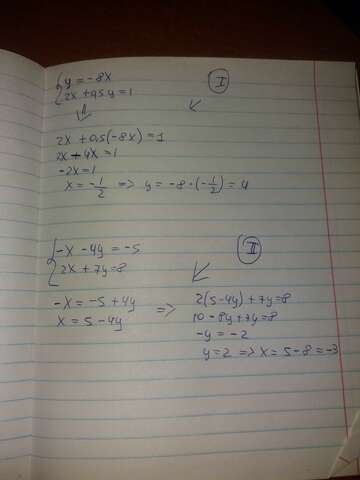 y = -8x
I
2x + 0,5y = 1
2x + 0,5(-8x) = 1
2x - 4x = 1
-2x = 1
x = -1/2 => y = -8 · (-1/2) = 4
II
-x - 4y = -5
2x + 7y = 8
-x = -5 + 4y =>
x = 5 - 4y
2(5 - 4y) + 7y = 8
10 - 8y + 7y = 8
-y = -2
y = 2 => x = 5 - 8 = -3